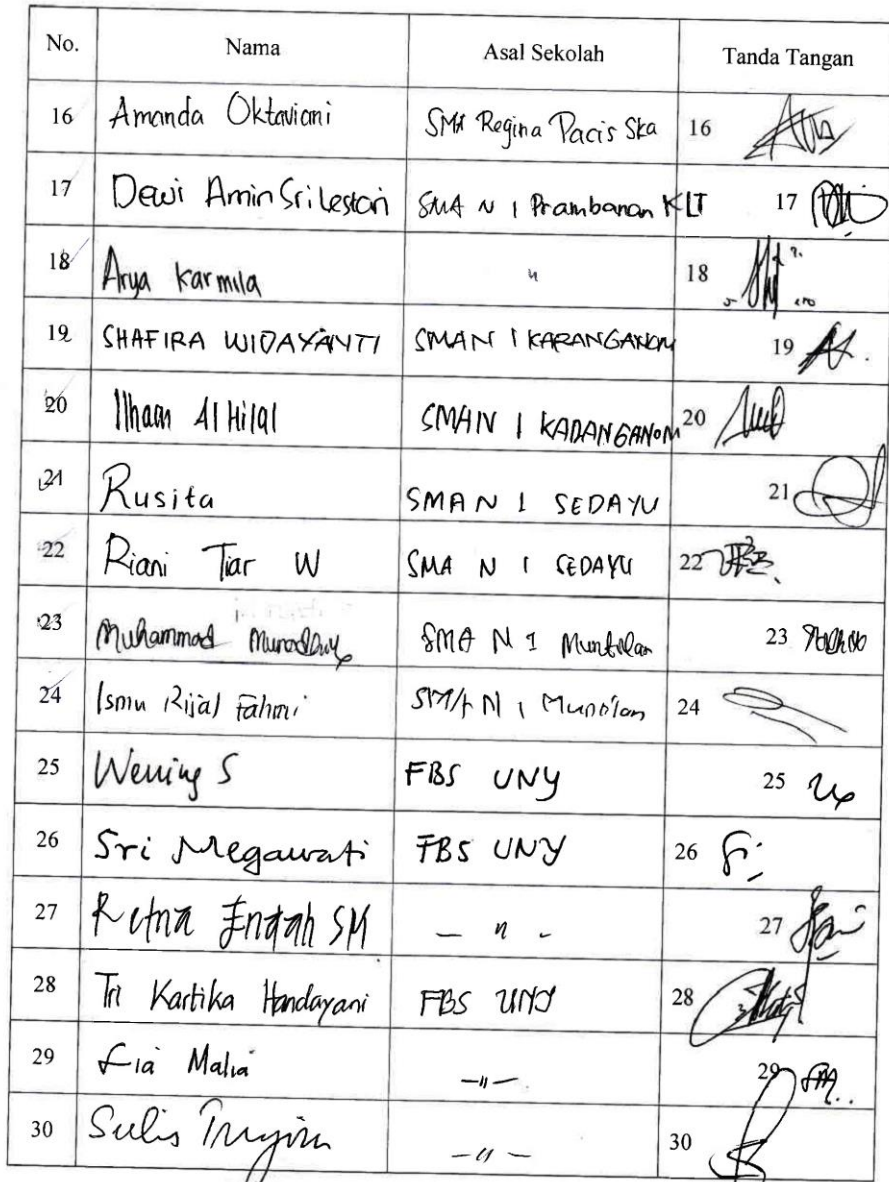 No. Nama Asal Sekolah Tanda Tangan
16 Amanda Oktaviani SMA Regina Pacis Ska 16
17 Dewi Amin Sri Lestari SMA N 1 Prambanan KLT 17
18 Arya Karmila " 18
19 SHAFIRA WIDAYANTI SMAN 1 KARANGANOM 19
20 Ilham Al Hilal SMAN 1 KARANGANOM 20
21 Rusita SMA N 1 SEDAYU 21
22 Riani Tiar W SMA N 1 SEDAYU 22
23 Muhammad SMA N 1 Muntilan 23
24 Ismu Rijal Fahmi SMA N 1 Muntilan 24
25 Wening S FBS UNY 25
26 Sri Megawati FBS UNY 26
27 Retna Endah SM — " - 27
28 Tri Kartika Handayani FBS UNY 28
29 Lia Malia — " — 29
30 Sulis — " — 30